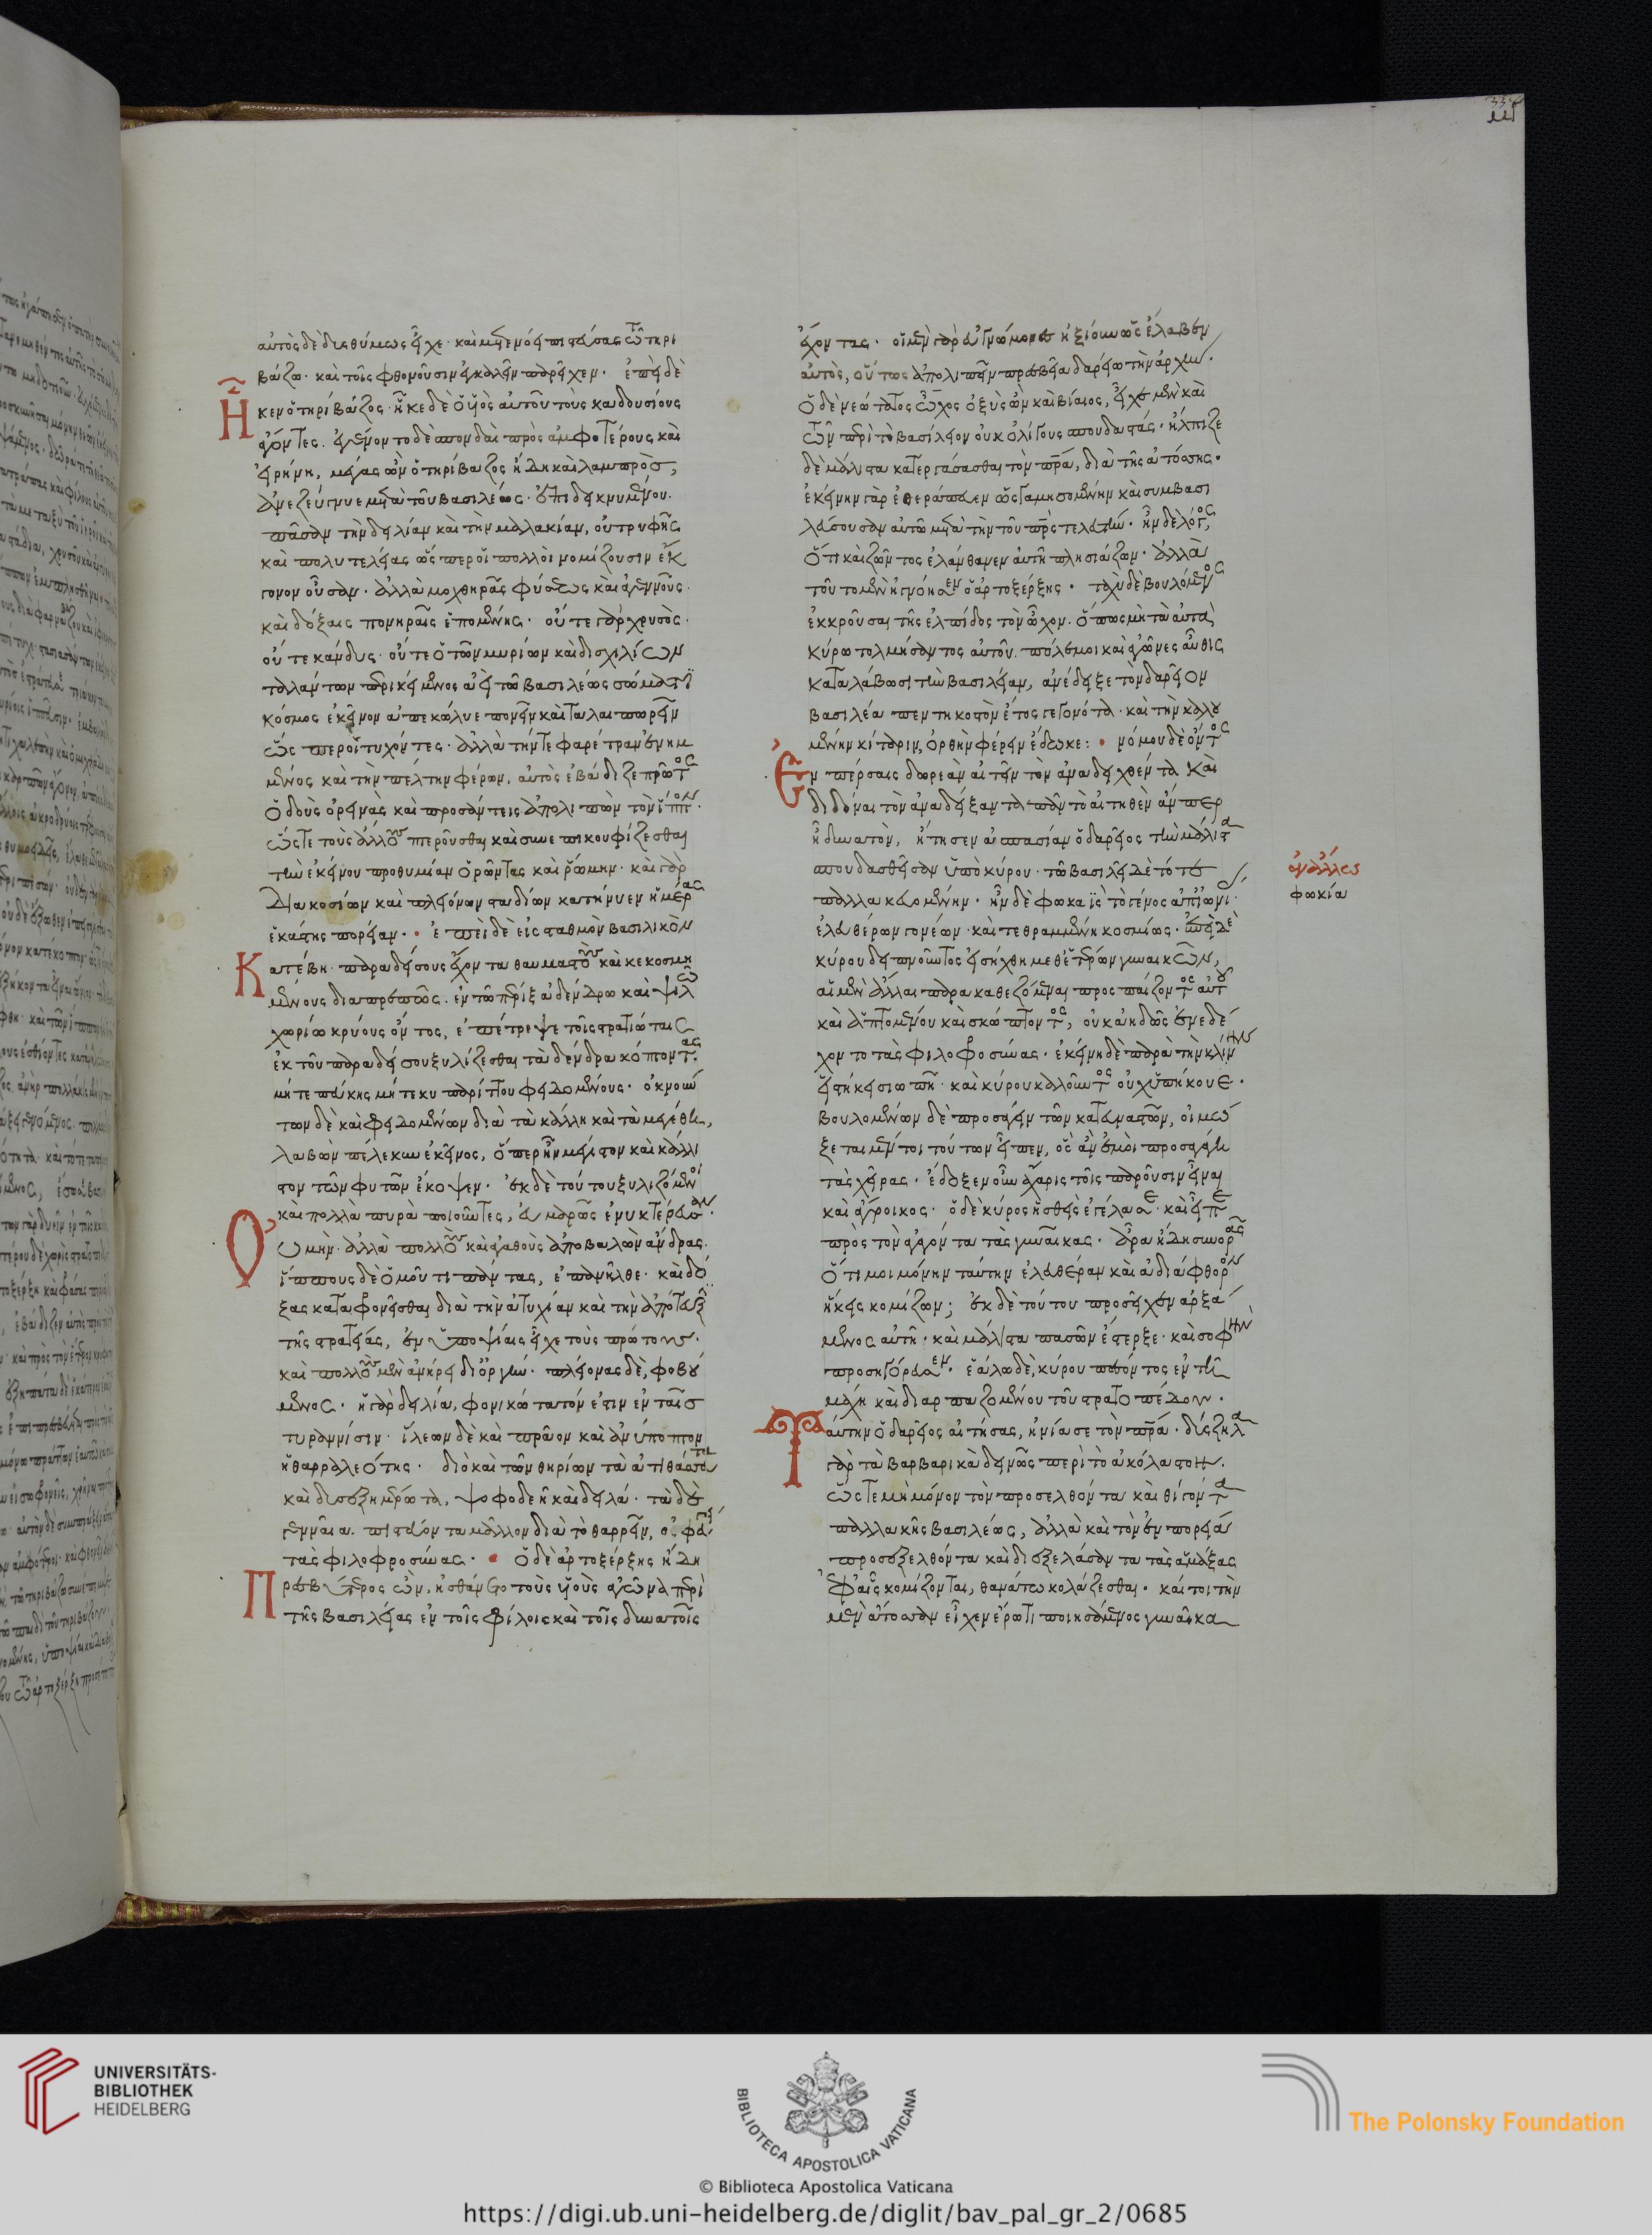 αὐτὸς δὲ δυσθύμως εἶχε· καὶ μετενόει πιστεύσας τῶ τηρι
βάζω· καὶ τοῖς φθονοῦσιν ἐγκαλεῖν παρεῖχεν· ἐπεὶ δὲ
Ἧκεν ὁ τηρίβαζος· ἧκε δὲ ὁ υἱὸς αὐτοῦ τοὺς καδουσίους
ἄγοντες. ἐγένοντο δὲ σπονδαὶ πρὸς ἀμφοτέρους καὶ
εἰρήνη, μέγας ὢν ὁ τηρίβαζος ἤδη καὶ λαμπρὸς,
ἀνεζεύγνυε μετὰ τοῦ βασιλέως· ἐπιδεικνυμένου
πᾶσαν τὴν δειλίαν καὶ τὴν μαλακίαν, οὐ τρυφῆς
καὶ πολυτελείας ὥσπερ οἱ πολλοὶ νομίζουσιν ἔκ
γονον οὖσαν· ἀλλὰ μοχθηρᾶς φύσεως καὶ ἀγεννοῦς·
καὶ δόξαις πονηραῖς ἑπομένης· οὔτε γὰρ χρυσὸς·
οὔτε κάνδυς· οὔτε ὁ τῶν μυρίων καὶ δισχιλίων
ταλάντων περικείμενος ἀεὶ τῶ βασιλέως σώματι
κόσμος ἐκεῖνον ἀπεκώλυε πονεῖν καὶ ταλαιπωρεῖν
ὥσπερ οἱ τυχόντες· ἀλλὰ τήν τε φαρέτραν ἐνημ
μένος καὶ τὴν πέλτην φέρων, αὐτὸς ἐβάδιζε πρῶτος
ὁδοὺς ὀρεινὰς καὶ προσάντεις ἀπολιπὼν τὸν ἵππον·
ὥστε τοὺς ἄλλους πτεροῦσθαι καὶ συνεπικουφίζεσθαι
τὴν ἐκείνου προθυμίαν ὁρῶντας καὶ ῥώμην· καὶ γὰρ
διακοσίων καὶ πλειόνων σταδίων κατήνυεν ἡμέρας
ἑκάστης πορείαν· ἐπεὶ δὲ εἰς σταθμὸν βασιλικὸν
Κατέβη· παραδείσους ἔχοντα θαυμαστοὺς καὶ κεκοσμη
μένους διαπρεπῶς· ἐν τῶ πέριξ ἀδένδρω καὶ ψιλῶ
χωρίω κρύους ὄντος, ἐπέτρεψε τοῖς στρατιώταις
ἐκ τοῦ παραδείσου ξυλίζεσθαι τὰ δένδρα κόπτοντας
μήτε πεύκης μήτε κυπαρίττου φειδομένους· ὀκνούν
των δὲ καὶ φειδομένων διὰ τὰ κάλλη καὶ τὰ μεγέθη,
λαβὼν πέλεκυν ἐκεῖνος, ὅπερ ἦν μέγιστον καὶ κάλλι
στον τῶν φυτῶν ἔκοψεν· ἐκ δὲ τούτου ξυλιζόμενοι
καὶ πολλὰ πυρὰ ποιοῦντες, εὐμαρῶς ἐνυκτέρευσαν·
Οὐ μὴν ἀλλὰ πολλοὺς καὶ ἀγαθοὺς ἀποβαλὼν ἄνδρας·
ἵππους δὲ ὁμοῦ τι πάντας, ἐπανῆλθε· καὶ δό
ξας καταφρονεῖσθαι διὰ τὴν ἀτυχίαν καὶ τὴν ἀπότευξιν
τῆς στρατείας, ἐν ὑποψίαις εἶχε τοὺς πρώτους·
καὶ πολλοὺς μὲν ἀνήρει δι' ὀργὴν· πλείονας δὲ, φοβού
μενος· ἡ γὰρ δειλία, φονικώτατόν ἐστιν ἐν ταῖς
τυραννίσιν· ἵλεων δὲ καὶ πρᾶον καὶ ἀνύποπτον
ἡ θαρραλεότης· διὸ καὶ τῶν θηρίων τὰ ἀτιθάσσευτα
καὶ δυσεξημέρωτα, ψοφοδεῆ καὶ δειλά· τὰ δὲ
γενναῖα πιστεύοντα μᾶλλον διὰ τὸ θαρρεῖν, οὐ φεύγει
τὰς φιλοφροσύνας· ὁ δὲ ἀρτοξέρξης ἤδη
Πρεσβύτερος ὢν, ἠσθάνετο τοὺς υἱοὺς ἀγῶνα περὶ
τῆς βασιλείας ἐν τοῖς φίλοις καὶ τοῖς δυνατοῖς
ἔχοντας· οἱ μὲν γὰρ εὐγνώμονες ἠξίουν ὡς ἔλαβεν
αὐτὸς, οὕτως ἀπολιπεῖν πρεσβεῖα δαρείω τὴν ἀρχήν·
ὁ δὲ νεώτατος ὦχος ὀξὺς ὢν καὶ βίαιος, εἶχε μὲν καὶ
τῶν περὶ τὸ βασίλειον οὐκ ὀλίγους σπουδαστάς· ἤλπιζε
δὲ μάλιστα κατεργάσασθαι τὸν πατέρα, διὰ τῆς ἀτόσσης·
ἐκείνην γὰρ ἐθεράπευεν ὡς γαμησομένην καὶ συμβασι
λεύσουσαν αὐτῶ μετὰ τὴν τοῦ πατρὸς τελευτήν· ἦν δὲ λόγος,
ὅτι καὶ ζῶντος ἐλάνθανεν αὐτῆ πλησιάζων· ἀλλὰ
τοῦτο μὲν ἠγνόησεν ὁ ἀρτοξέρξης· ταχὺ δὲ βουλόμενος
ἐκκροῦσαι τῆς ἐλπίδος τὸν ὦχον· ὅπως μὴ τὰ αὐτὰ
κύρω τολμήσαντος αὐτοῦ· πόλεμοι καὶ ἀγῶνες αὖθις
καταλάβωσι τὴν βασιλείαν, ἀνέδειξε τὸν δαρεῖον
βασιλέα πεντηκοστὸν ἔτος γεγονότα· καὶ τὴν καλου
μένην κίταριν, ὀρθὴν φέρειν ἔδωκε: νόμου δὲ ὄντος
Ἐν πέρσαις δωρεὰν αἰτεῖν τὸν ἀναδειχθέντα καὶ
διδόναι τὸν ἀναδείξαντα πᾶν τὸ αἰτηθὲν ἄνπερ
ᾖ δυνατὸν, ἤτησεν ἀσπασίαν ὁ δαρεῖος τὴν μάλιστα
σπουδασθεῖσαν ὑπὸ κύρου· τῶ βασιλεῖ δὲ τότε
παλλακευομένην· ἦν δὲ φωκαῒς τὸ γένος ἀπ' ἰωνίας
ἐλευθέρων γονέων· καὶ τεθραμμένη κοσμίως· ἐπεὶ δὲ
κύρου δειπνοῦντος εἰσήχθη μεθ' ἑτέρων γυναικῶν,
αἱ μὲν ἄλλαι παρακαθεζόμεναι προσπαίζοντος αὐτοῦ
καὶ ἁπτομένου καὶ σκώπτοντος, οὐκ ἀηδῶς ἐνεδέ
χοντο τὰς φιλοφροσύνας· ἐκείνη δὲ παρὰ τὴν κλίνην
εἱστήκει σιωπῆ· καὶ κύρου καλοῦντος οὐχ ὑπήκουε·
βουλομένων δὲ προσάγειν τῶν κατευναστῶν, οἰμώ
ξεται μέντοι τούτων εἶπεν, ὃς ἂν ἐμοὶ προσαγάγη
τὰς χεῖρας· ἔδοξεν οὖν ἄχαρις τοῖς παροῦσιν εἶναι
καὶ ἄγροικος· ὁ δὲ κύρος ἡσθεὶς ἐγέλασε· καὶ εἶπε
πρὸς τὸν ἀγαγόντα τὰς γυναῖκας· ἆρα ἤδη συνορᾶς
ὅτι μοι μόνην ταύτην ἐλευθέραν καὶ ἀδιάφθορον
ἥκεις κομίζων; ἐκ δὲ τούτου προσεῖχεν ἀρξά
μενος αὐτῆ· καὶ μάλιστα πασῶν ἔστερξε· καὶ σοφὴν
προσηγόρευσεν· ἑάλω δὲ, κύρου πεσόντος ἐν τῆ
μάχη καὶ διαρπαζομένου τοῦ στρατοπέδου·
Ταύτην ὁ δαρεῖος αἰτήσας, ἠνίασε τὸν πατέρα· δύσζηλα
γὰρ τὰ βαρβαρικὰ δεινῶς περὶ τὸ ἀκόλαστον·
ὥστε μὴ μόνον τὸν προσελθόντα καὶ θιγόντα
παλλακῆς βασιλέως, ἀλλὰ καὶ τὸν ἐν πορεία
προσεξελθόντα καὶ διεξελάσαντα τὰς ἁμάξας
ἐφ' αἷς κομίζονται, θανάτω κολάζεσθαι· καί τοι τὴν
μὲν ἄτοσσαν εἶχεν ἔρωτι ποιησάμενος γυναῖκα
φωκία
UNIVERSITÄTS-
BIBLIOTHEK
HEIDELBERG
BIBLIOTECA APOSTOLICA VATICANA
The Polonsky Foundation
© Biblioteca Apostolica Vaticana
https://digi.ub.uni-heidelberg.de/diglit/bav_pal_gr_2/0685